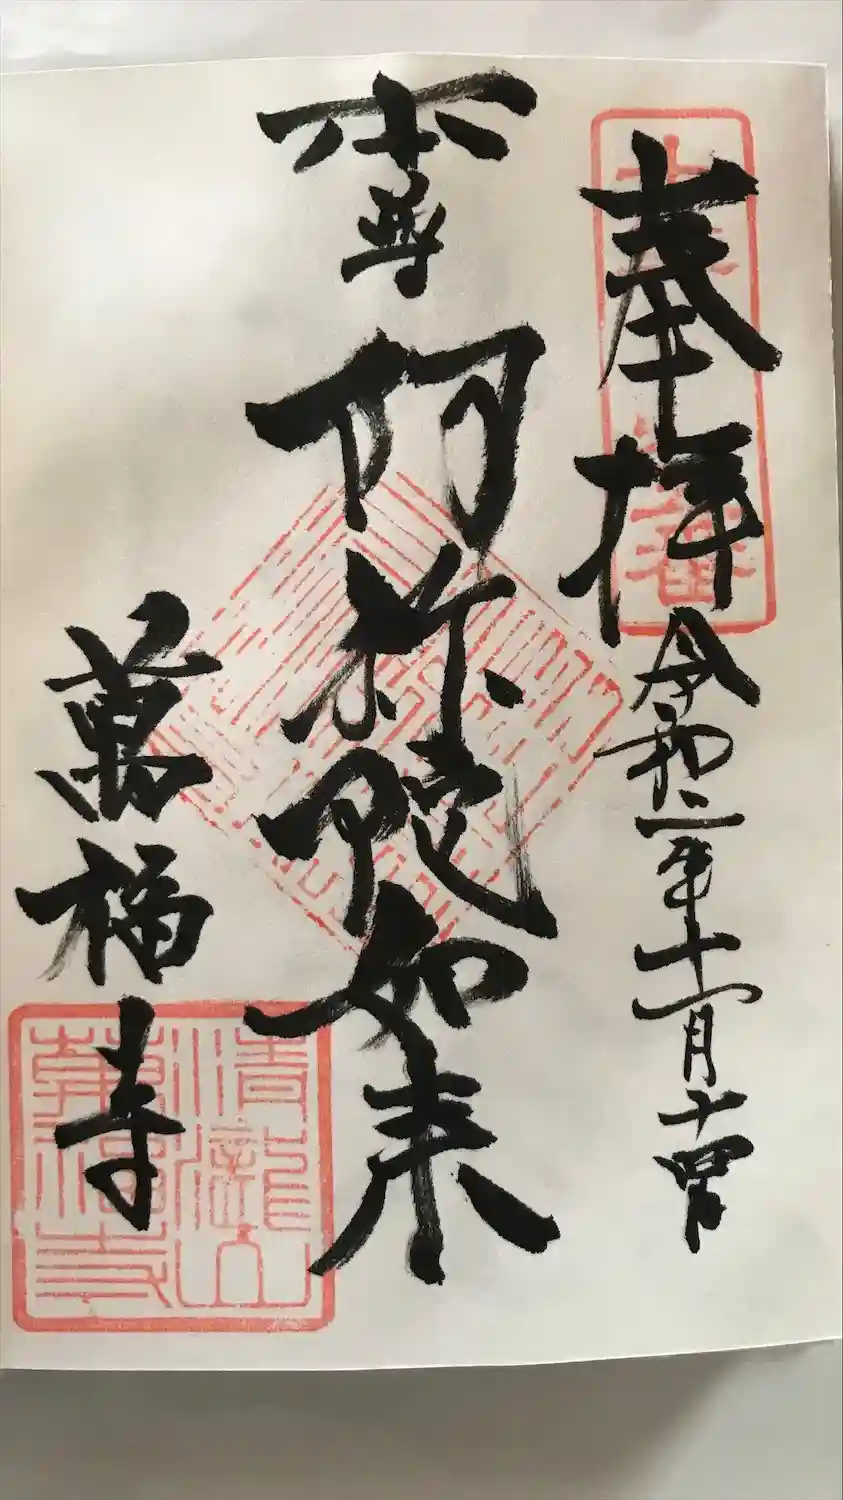 奉拝
令和二年十一月十四日
本尊
阿弥陀如来
萬福寺
清瀧山
萬福寺